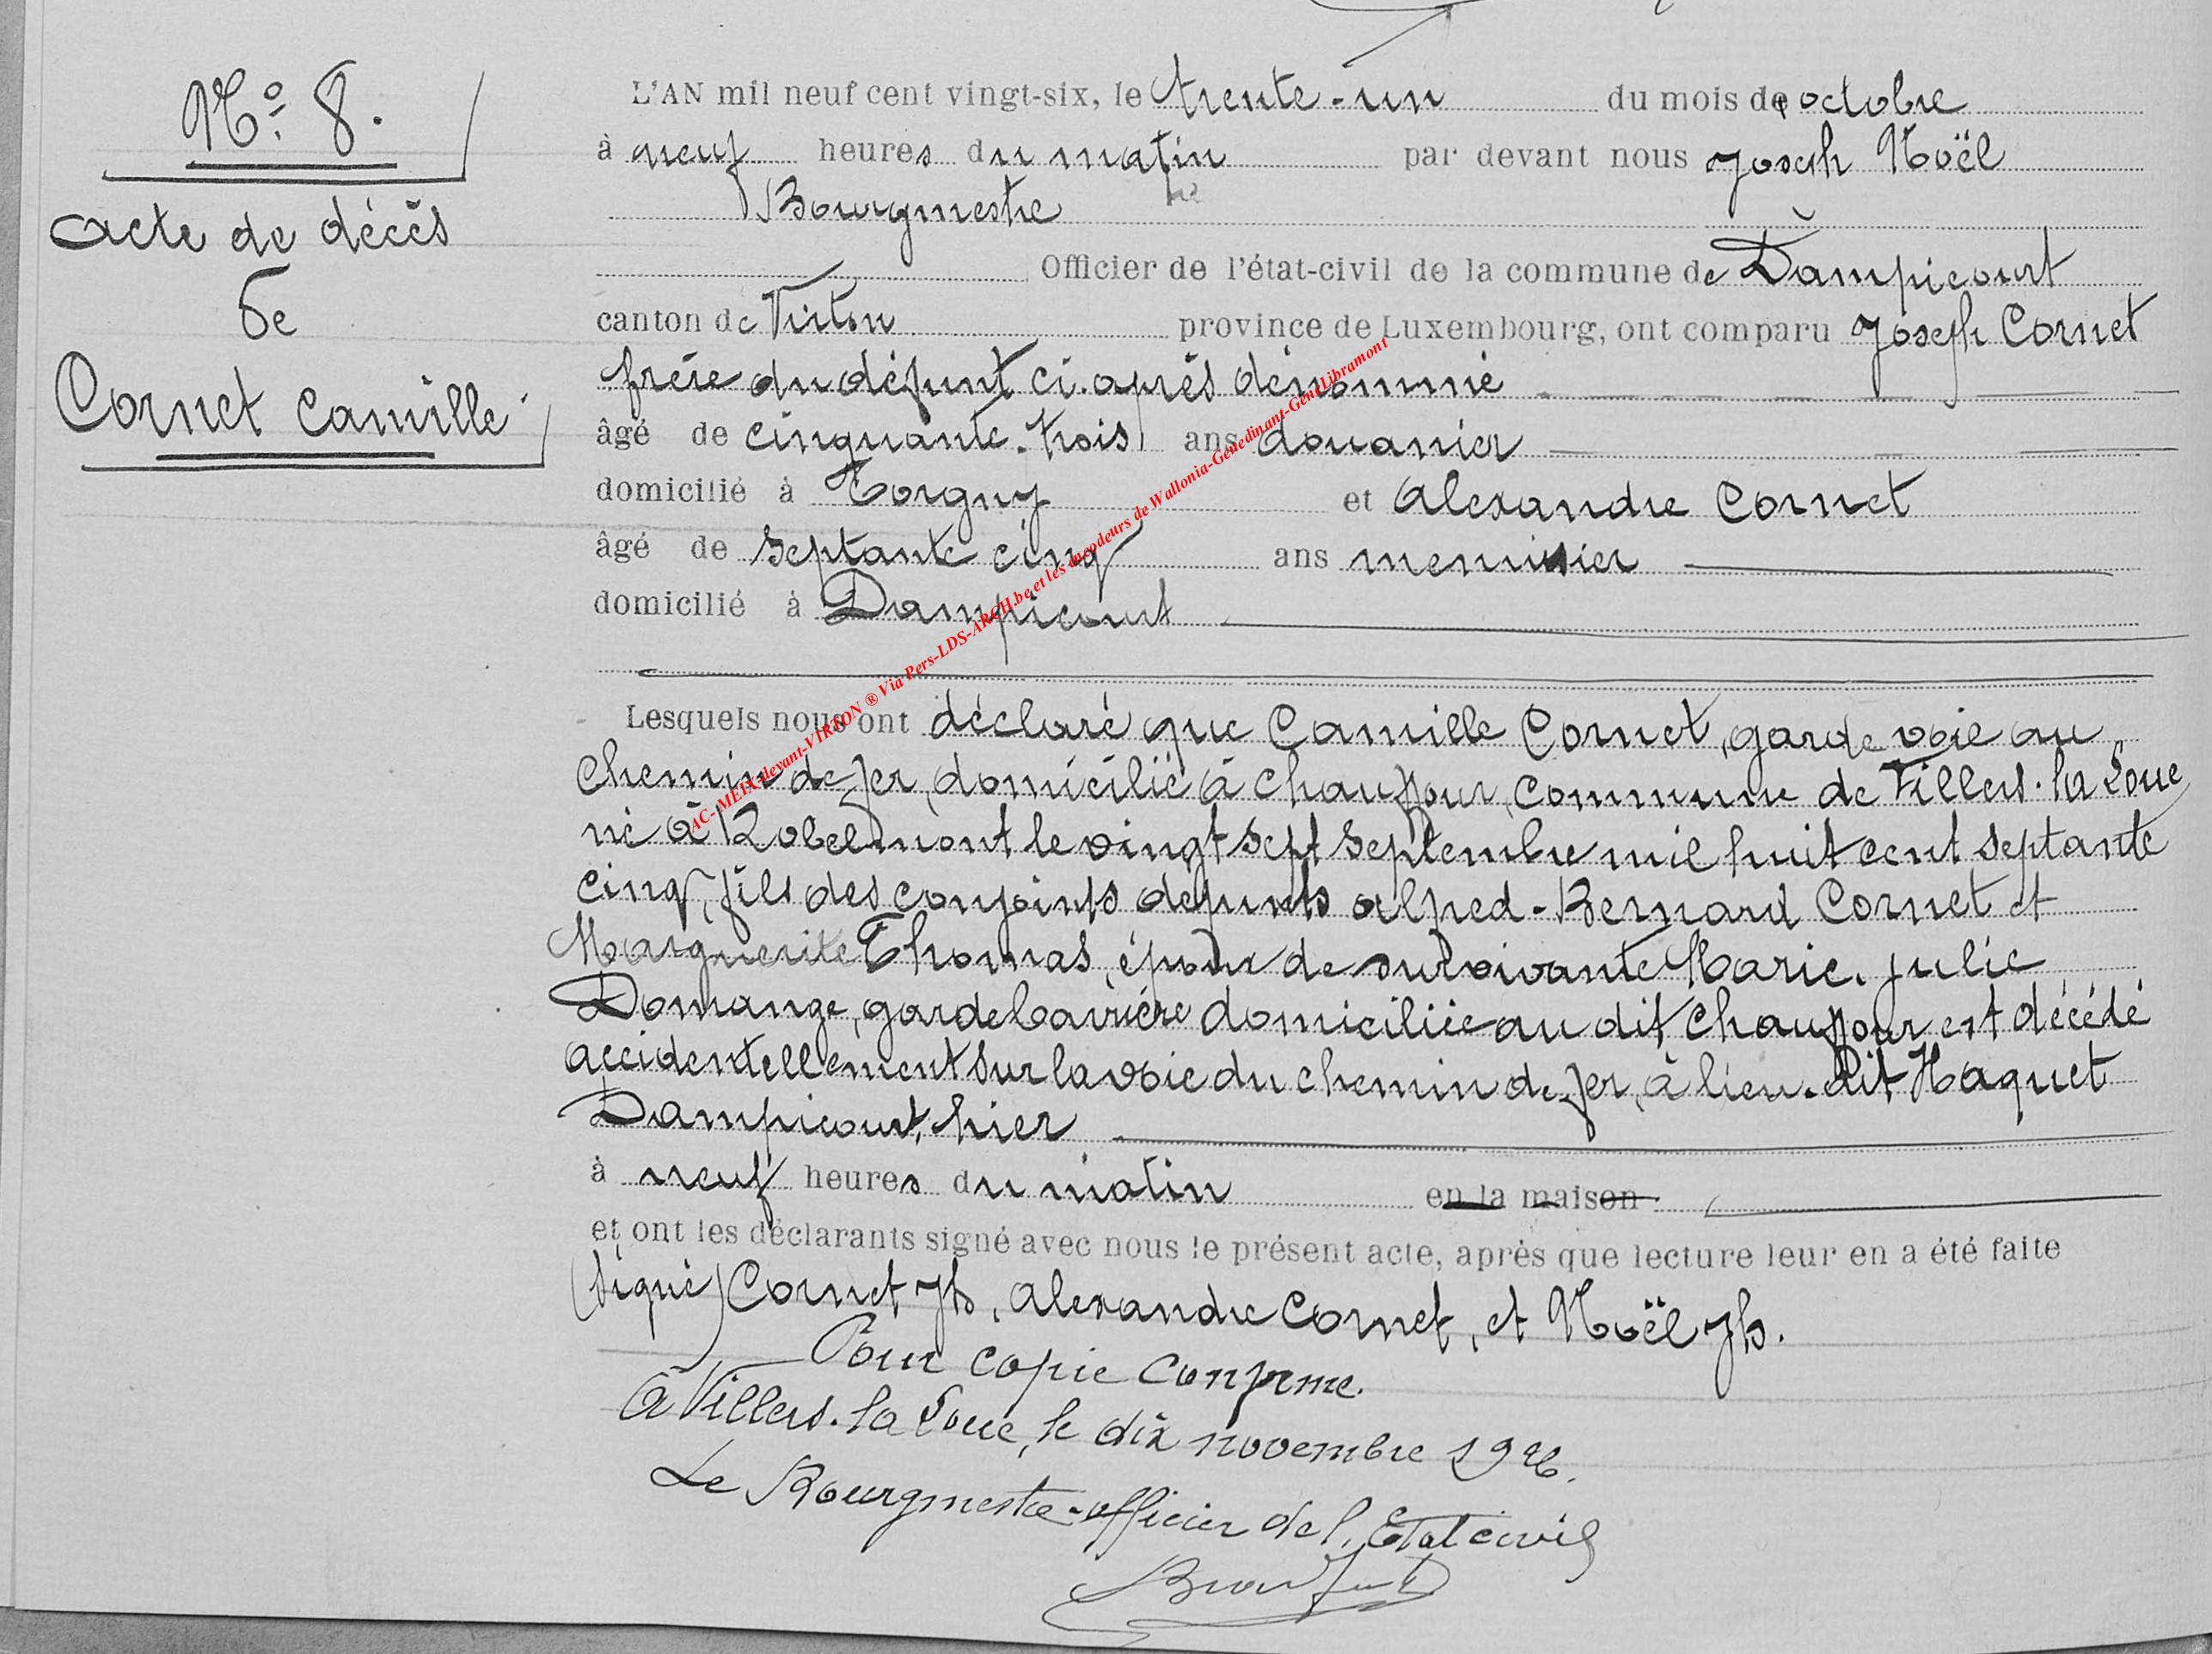 N° 8.
acte de décès
de
Cornet Camille
L'AN mil neuf cent vingt-six, le trente-un du mois de octobre
à neuf heures du matin par devant nous Joseph Noël
Bourgmestre
Officier de l'état-civil de la commune de Dampicourt
canton de Virton province de Luxembourg, ont comparu Joseph Cornet
frère du défunt ci-après dénommé
âgé de cinquante-trois ans douanier
domicilié à Torgny et Alexandre Cornet
âgé de septante cinq ans menuisier
domicilié à Dampicourt
Lesquels nous ont déclaré que Camille Cornet, garde voie au
chemin de fer, domicilié à Chauffour, commune de Villers-la Loue
né à Robelmont le vingt sept septembre mil huit cent septante
cinq, fils des conjoints défunts Alfred-Bernard Cornet et
Marguerite Thomas, époux de survivante Marie-Julie
Domange, garde barrière domiciliée au dit Chauffour est décédé
accidentellement sur la voie du chemin de fer, à lieu-dit Haquet
Dampicourt, hier
à neuf heures du matin en la maison
et ont les déclarants signé avec nous le présent acte, après que lecture leur en a été faite
(signé) Cornet Jh, Alexandre Cornet, et Noël Jh.
Pour copie conforme.
A Villers-la Loue, le dix novembre 1926.
Le Bourgmestre-officier de l'Etat civil
AC-MEIX-devant-VIRTON ® Via Pers-LDS-ARCH.be et les encodeurs de Wallonia-Genedinant-GeneLibramont